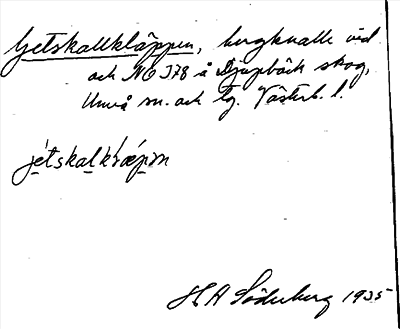 Getskallkläppen, bergknalle vid
och NO I78 å Djupbäck skog,
Umeå sn. och tg. Västerb. l.
jétskalkl̀æp̀ən
H A Söderberg 1935